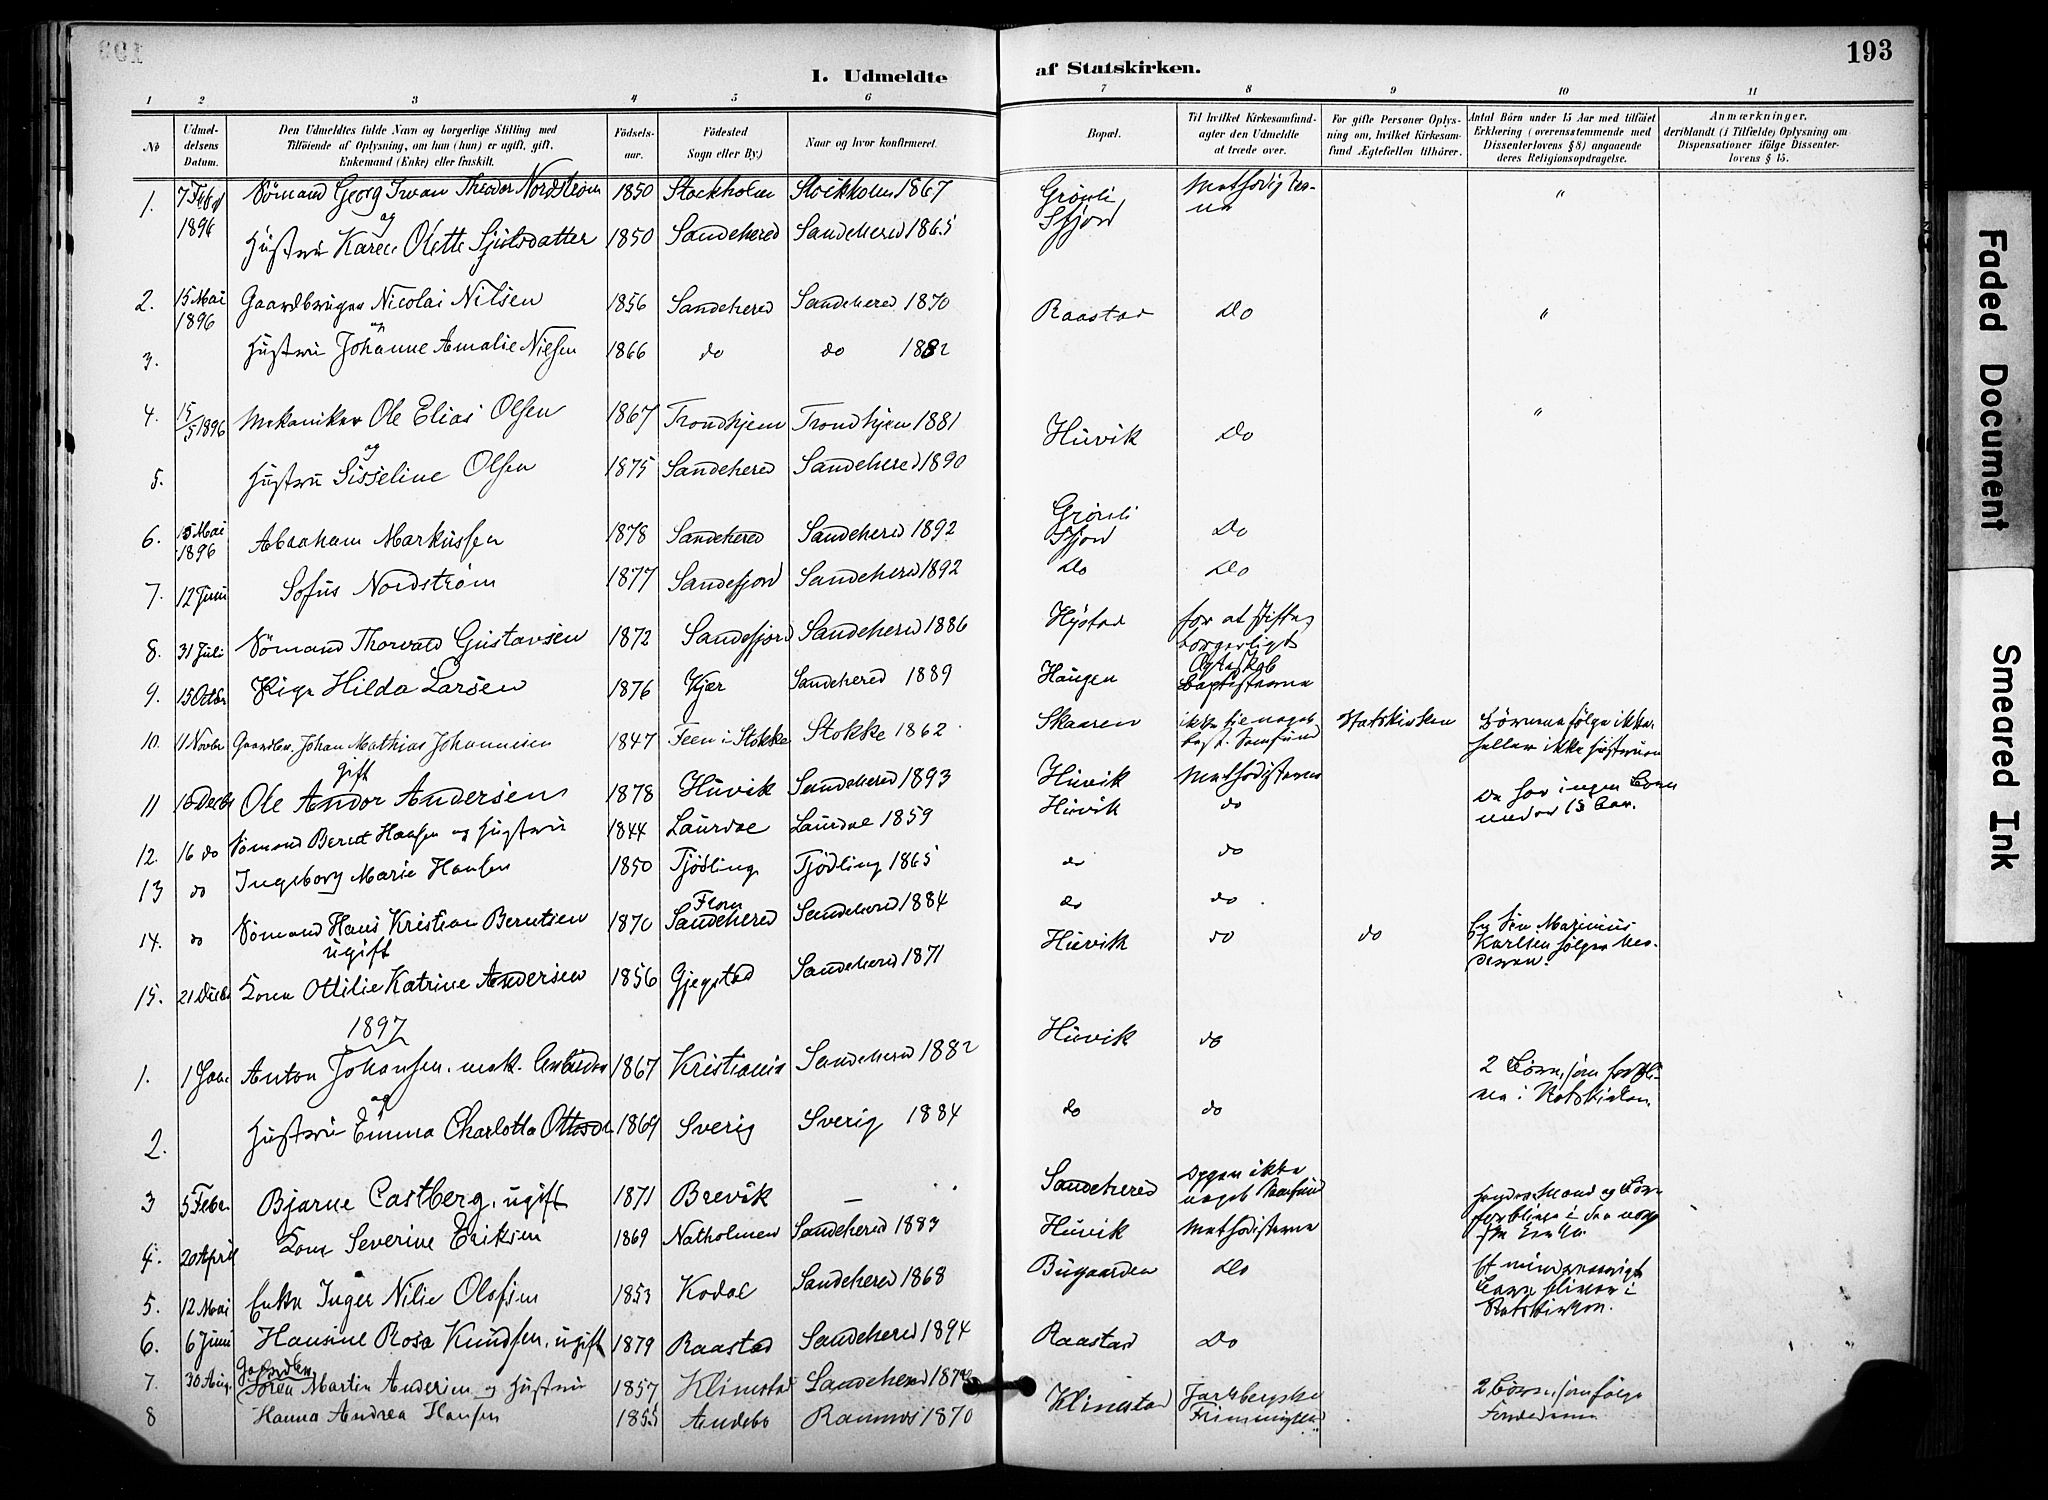 193
I. Udmeldte af Statskirken.
1 2 3 4 5 6 7 8 9 10 11
No
Udmeldelsens Datum.
Den Udmeldtes fulde Navn og borgerlige Stilling med Tilföiende af Oplysning, om hun (hun) er ugift, gift, Enkemand (Enke) eller fraskilt.
Födselsaar.
Födested Sogn eller By.)
Naar og hvor konfirmeret.
Bopæl.
Til hvilket Kirkesamfund agter den Udmeldte at træde over.
For gifte Personer Oplysning om, hvilket Kirkesamfund Ægtefællen tilhører.
Antal Börn under 15 Aar med tilföiet Erklæring (overensstemmende med Dissenterlovens § 8) angaaende deres Religionsopdragelse.
Anmærkninger, deriblandt (i Tilfælde) Oplysning om Dispensationer ifölge Dissenterlovens § 15.
1. 7 Feb 1896 Sömand Georg Iwan Theodor Nordström 1850 Stockholm Stockholm 1867 Grönli, Sfjord Methodisterne "
og Hustru Karen Olette 1850 Sandeherred Sandeherred 1865
2. 15 Mai 1896 Gaardbruger Nicolai Nilsen 1856 Sandeherred Sandeherred 1870 Raastad Do "
3. og Hustru Johanne Amalie Nielsen 1866 do do 1882
4. 15/5 1896 Mekaniker Ole Elias Olsen 1867 Trondhjem Trondhjem 1881 Huvik Do "
5. og Hustru Sisseline Olsen 1875 Sandeherred Sandeherred 1890
6. 15 Mai 1896 Abraham Markussen 1878 Sandeherred Sandeherred 1892 Grönli Sfjord Do
7. 12 Juni Sofus Nordström 1877 Sandefjord Sandeherred 1892 Do Do
8. 31 Juli Sömand Thorvald Gustavsen 1872 Sandefjord Sandeherred 1886 Hystad for at stifte borgerligt Ægteskab
9. 15 Octbr Pige Hilda Larsen 1876 Kjær Sandeherred 1889 Haugen Baptisterne
10. 11 Novbr Gaardbr. Johan Mathias Johannesen gift 1847 Feen i Stokke Stokke 1862 Skaaren ikke til noget best. Samfund Statskirken Börnene fölge ikke, heller ikke Hustruen
11 16 Decbr Ole Andor Andersen 1878 Huvik Sandeherred 1893 Huvik Methodisterne
12. 16 do Sömand Berndt Hansen og Hustru 1844 Laurdal Laurdal 1859 Huvik do De har ingen Börn under 15 Aar.
13 do Ingeborg Marie Hansen 1850 Tjödling Tjödling 1865 do do
14. do Sömand Hans Kristian Berntsen ugift 1870 Flom Sandeherred Sandeherred 1884 do do
15. 21 Decbr Kone Ottilie Katrine Andersen 1856 Gjegstad Sandeherred 1871 Huvik do do En Sön Marinius Karlsen fölger Moderen.
1897
1. 1 Jan Anton Johansen, mek. Arbeider 1867 Kristiania Sandeherred 1882 Huvik do 2 Börn, som forbliver i Statskirken.
2. og Hustru Emma Charlotta 1869 Sverig Sverig 1884 do do
3 5 Febr. Bjarne Castberg, ugift 1871 Brevik — Sandeherred opgav ikke noget Samfund
4. 20 April Kone Severine Eriksen 1869 Natholmen Sandeherred 1883 Huvik Methodisterne
5. 12 Mai Enke Inger Nilie Olofsen 1853 Kodal Sandeherred 1868 Bugaarden Do Et mindreaarigt Barn bliver i Statskirken.
6. 6 Juni Hansine Rosa Knudsen, ugift 1879 Raastad Sandeherred 1894 Raastad Do
7. 30 Aug. Gaardbr. Sören Martin Andersen og Hustru 1857 Klinestad Sandeherred Klinestad Jarlsbergske Frimenighed 2 Börn, som fölge Forældrene
8 Hanna Andrea Hansen 1855 Andebo Ramnes 1870
Faded Document
Smeared Ink